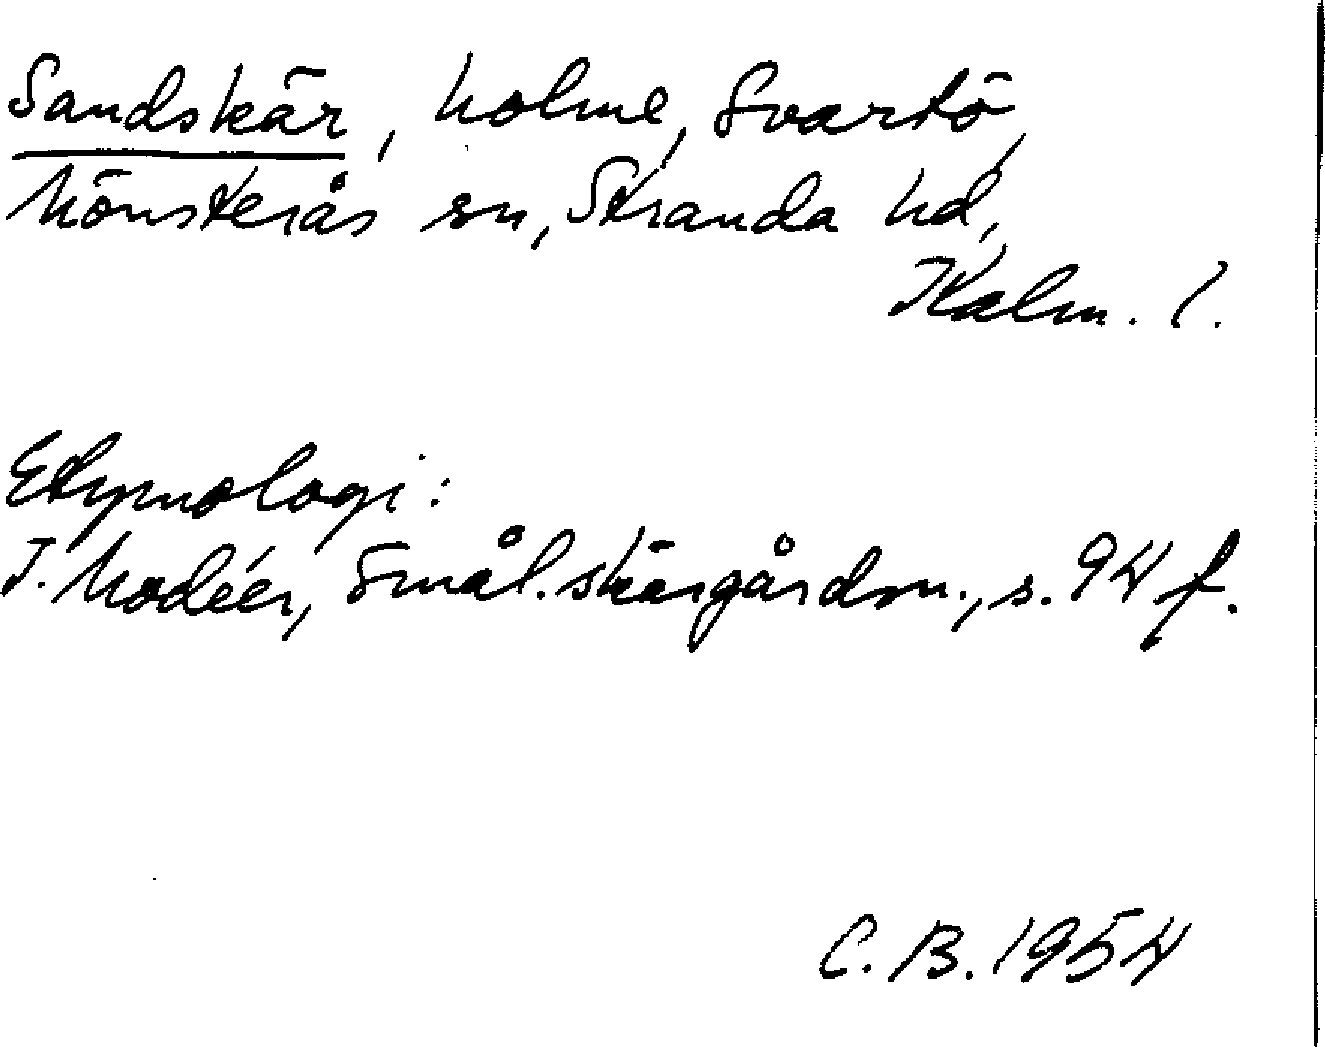 Sandskär, holme, Svartö,
Mönsterås sn, Stranda hd,
Kalm. l.
Etymologi:
I. Modéer, Smål. skärgårdsn., s. 94 f.
C. B. 1954